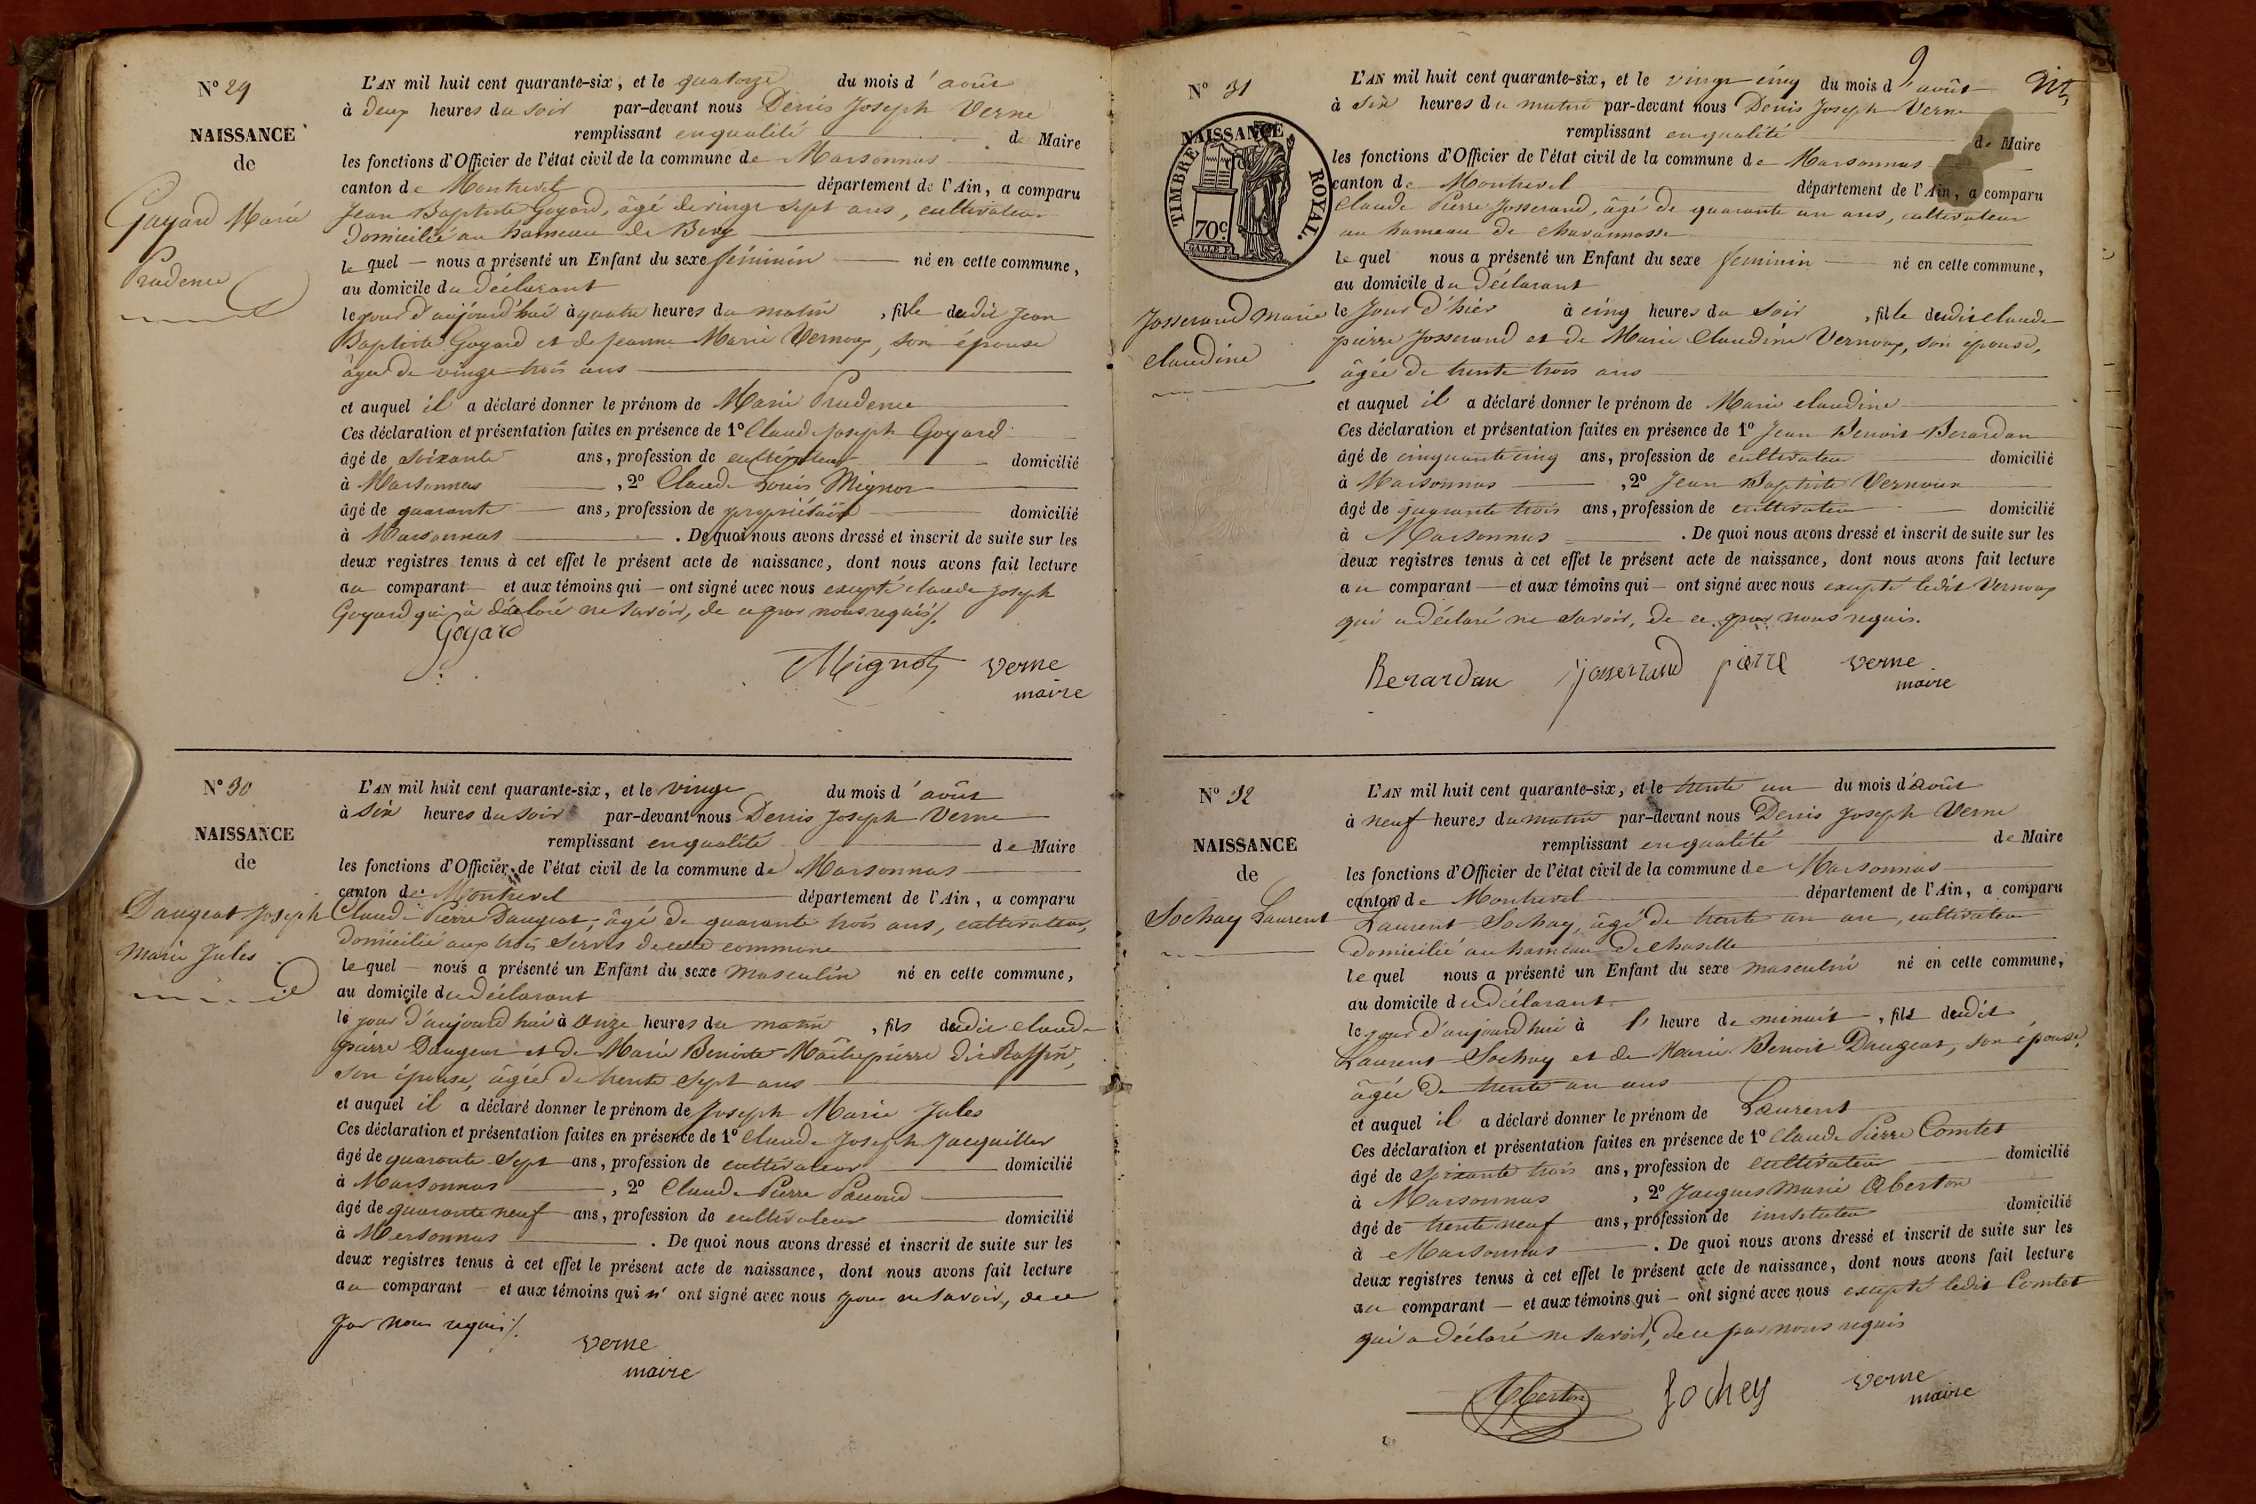 N° 29
NAISSANCE
de
Goyard Marie
Prudence
L'AN mil huit cent quarante-six, et le quatorze du mois d'août
à deux heures du soir par-devant nous Denis Joseph Verne
remplissant en qualité de Maire
les fonctions d'Officier de l'état civil de la commune de Marsonnas
canton de Montrevel département de l'Ain, a comparu
Jean Baptiste Goyard, âgé de vingt sept ans, cultivateur
domicilié au hameau de Bevy
le quel nous a présenté un Enfant du sexe féminin né en cette commune,
au domicile du déclarant
le jour d'aujourd'hui à quatre heures du matin, fille dudit Jean
Baptiste Goyard et de Jeanne Marie Vernoux, son épouse
âgée de vingt trois ans
et auquel il a déclaré donner le prénom de Marie Prudence
Ces déclaration et présentation faites en présence de 1° Claude Joseph Goyard
âgé de soixante ans, profession de cultivateur domicilié
à Marsonnas, 2° Claude Louis Mignot
âgé de quarante ans, profession de propriétaire domicilié
à Marsonnas. De quoi nous avons dressé et inscrit de suite sur les
deux registres tenus à cet effet le présent acte de naissance, dont nous avons fait lecture
au comparant et aux témoins qui ont signé avec nous excepté claude joseph
Goyard qui a déclaré ne savoir, de ce par nous requis.
Goyard
Mignot Verne
maire
N° 30
NAISSANCE
de
Daugeat Joseph
Marie Jules
L'AN mil huit cent quarante-six, et le vingt du mois d'août
à six heures du soir par-devant nous Denis Joseph Verne
remplissant en qualité de Maire
les fonctions d'Officier de l'état civil de la commune de Marsonnas
canton de Montrevel département de l'Ain, a comparu
Claude Pierre Daugeat, âgé de quarante trois ans, cultivateur,
domicilié aux trois Serves de cette commune
le quel nous a présenté un Enfant du sexe masculin né en cette commune,
au domicile du déclarant
le jour d'aujourd'hui à onze heures du matin, fils dudit claude
pierre Daugeat et de Marie Benoite Maîtrepierre dit Raffin,
son épouse, âgée de trente sept ans
et auquel il a déclaré donner le prénom de Joseph Marie Jules
Ces déclaration et présentation faites en présence de 1° Claude Joseph Jacquillet
âgé de quarante sept ans, profession de cultivateur domicilié
à Marsonnas, 2° Claude Pierre
âgé de quarante neuf ans, profession de cultivateur domicilié
à Marsonnas. De quoi nous avons dressé et inscrit de suite sur les
deux registres tenus à cet effet le présent acte de naissance, dont nous avons fait lecture
au comparant et aux témoins qui n'ont signé avec nous pour ne savoir, de ce
par nous requis.
Verne
maire
9
N° 31
NAISSANCE
TIMBRE ROYAL.
70c.
Josserand Marie
claudine
L'AN mil huit cent quarante-six, et le vingt cinq du mois d'août
à six heures du matin par-devant nous Denis Joseph Verne
remplissant en qualité de Maire
les fonctions d'Officier de l'état civil de la commune de Marsonnas
canton de Montrevel département de l'Ain, a comparu
Claude Pierre Josserand, âgé de quarante un ans, cultivateur
au hameau de chavannosse
le quel nous a présenté un Enfant du sexe feminin né en cette commune,
au domicile du déclarant
le jour d'hier à cinq heures du soir, fille dudit claude
pierre Josserand et de Marie Claudine Vernoux, son épouse,
âgée de trente trois ans
et auquel il a déclaré donner le prénom de Marie claudine
Ces déclaration et présentation faites en présence de 1° Jean Benoit Berardan
âgé de cinquante cinq ans, profession de cultivateur domicilié
à Marsonnas, 2° Jean Baptiste Vernoux
âgé de quarante trois ans, profession de cultivateur domicilié
à Marsonnas. De quoi nous avons dressé et inscrit de suite sur les
deux registres tenus à cet effet le présent acte de naissance, dont nous avons fait lecture
au comparant et aux témoins qui ont signé avec nous excepté ledit Vernoux
qui a déclaré ne savoir, de ce par nous requis.
Berardan josserand pierre Verne
maire
N° 32
NAISSANCE
de
Sochay Laurent
L'AN mil huit cent quarante-six, et le trente un du mois d'août
à neuf heures du matin par-devant nous Denis Joseph Verne
remplissant en qualité de Maire
les fonctions d'Officier de l'état civil de la commune de Marsonnas
canton de Montrevel département de l'Ain, a comparu
Laurent Sochay, âgé de trente un an, cultivateur
domicilié au hameau de chaselle
le quel nous a présenté un Enfant du sexe masculin né en cette commune,
au domicile du déclarant
le jour d'aujourd'hui à l'heure de minuit, fils dudit
Laurent Sochay et de Marie Benoit Daugeat, son épouse,
âgée de trente un ans
et auquel il a déclaré donner le prénom de Laurent
Ces déclaration et présentation faites en présence de 1° Claude Pierre Comtet
âgé de soixante trois ans, profession de cultivateur domicilié
à Marsonnas, 2° Jacques Marie Aberton
âgé de trente neuf ans, profession de instituteur domicilié
à Marsonnas. De quoi nous avons dressé et inscrit de suite sur les
deux registres tenus à cet effet le présent acte de naissance, dont nous avons fait lecture
au comparant et aux témoins qui ont signé avec nous excepté ledit Comtet
qui a déclaré ne savoir, de ce par nous requis
Aberton Sochey Verne
maire